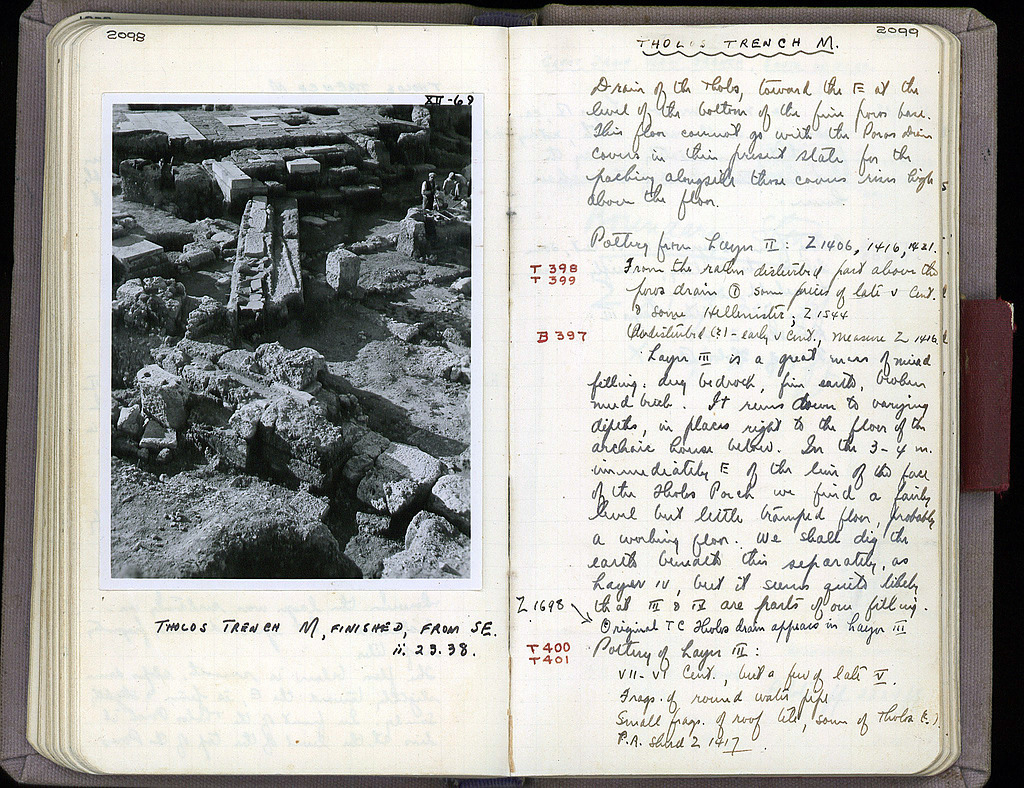 2098
XII-69
THOLOS TRENCH M, FINISHED, FROM SE.
ii. 23.38.
2099
THOLOS TRENCH M.
Drain of the Tholos, toward the E at the
level of the bottom of the fine poros base.
This floor cannot go with the Poros drain
covers in their present state for the
packing alongside those covers rises high
above the floor.
Pottery from Layer II: Z 1406, 1416, 1421.
T 398
From the rather disturbed part above the
T 399
poros drain some pieces of late V Cent.
& some Hellenistic; Z 1544
B 397
Undisturbed - early V Cent., measure Z 1416
Layer III is a great mass of mixed
filling: dug bedrock, fine earth, broken
mud brick. It runs down to varying
depths, in places right to the floor of the
archaic house below. In the 3-4 m.
immediately E of the line of the face
of the Tholos Porch we find a fairly
level but little tramped floor, probably
a working floor. We shall dig the
earth beneath this separately, as
Layer IV, but it seems quite likely
that III & IV are parts of one filling.
Z 1698
Original TC Tholos drain appears in Layer III
T 400
Pottery of Layer III:
T 401
VII-VI Cent., but a few of late V.
Frags. of round water pipe
Small frags. of roof tile, some of Tholos (?)
P.A. sherd Z 1417